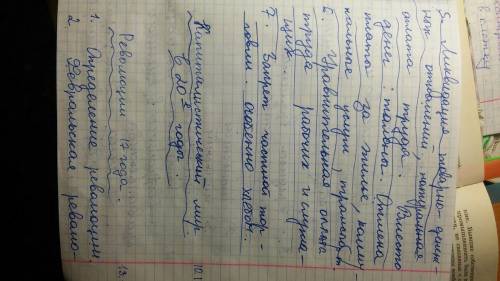 5. Ликвидация товарно-денеж-
ных отношений, натуральная
оплата труда. Вместо
денег талоны. Отмена
платы за жилье, комму-
нальные услуги, транспорт.
6. Уравнительная оплата
труда рабочих и служа-
щих.
7. Запрет частной тор-
говли, особенно хлебом.
Капиталистический мир
в 20-е годы.
Революции 17 года.
1. Определение революции.
2. Февральская револю-